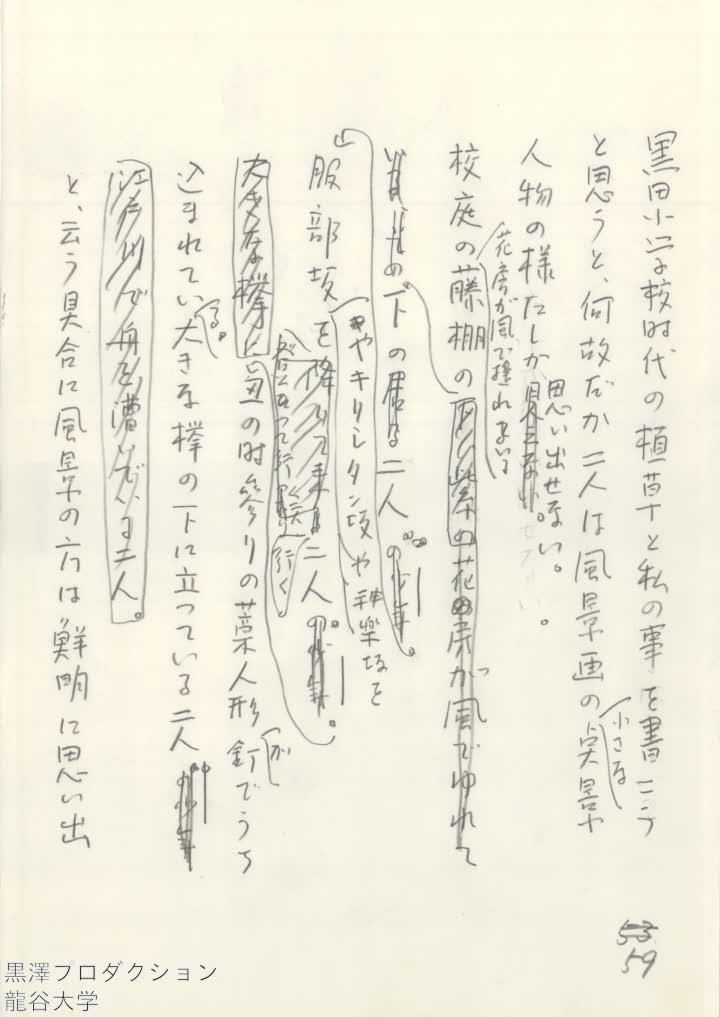 黒田小学校時代の植草と私の事を書こう
と思うと、何故だか二人は風景画の点景や
小さな
人物の様だしか
思い出せない。
校庭の藤棚の
花房が風で揺れている
紫の花房が風でゆれて
いる
の下の居る二人の少年。
や
やキリシタン坂や神楽坂を
服部坂を降りて来る二人の少年。
登って行く
大きな欅に丑の時参りの藁人形が釘でうち
込まれている。大きな欅の下に立っている二人の少年
江戸川で舟を漕いでいる二人。
と、云う具合に風景の方は鮮明に思い出
53
59
黒澤プロダクション
龍谷大学